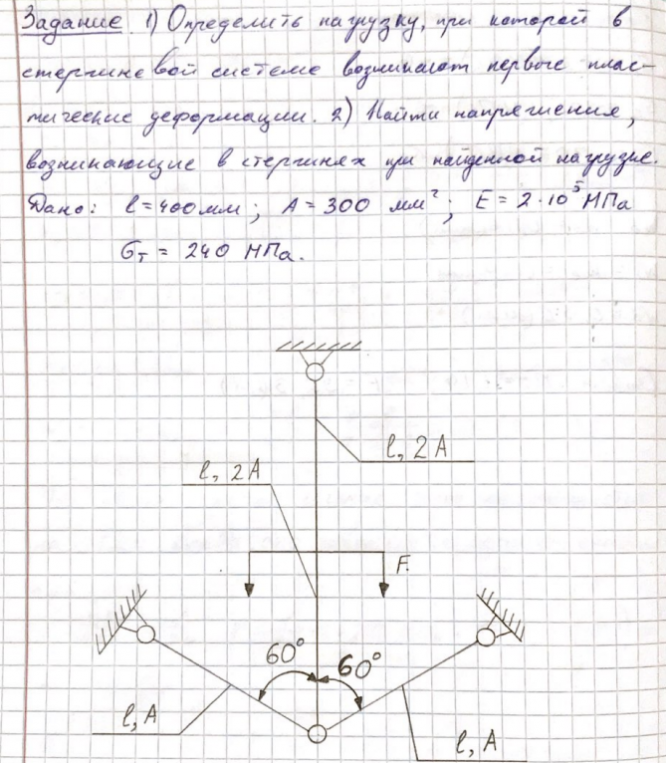 Задание 1) Определить нагрузку, при которой в
стержневой системе возникают первые плас-
тические деформации. 2) Найти напряжения,
возникающие в стержнях при найденной нагрузке.
Дано: l = 400 мм; A = 300 мм²; E = 2·10⁵ МПа
σт = 240 МПа.
l, 2A
l, 2A
F.
60° 60°
l, A
l, A